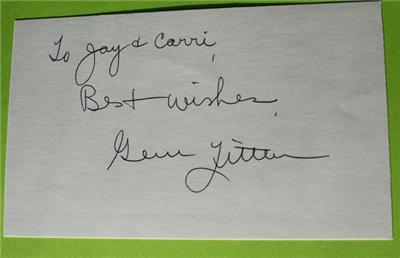 To Jay & Carri,
Best wishes,
Gene Littler